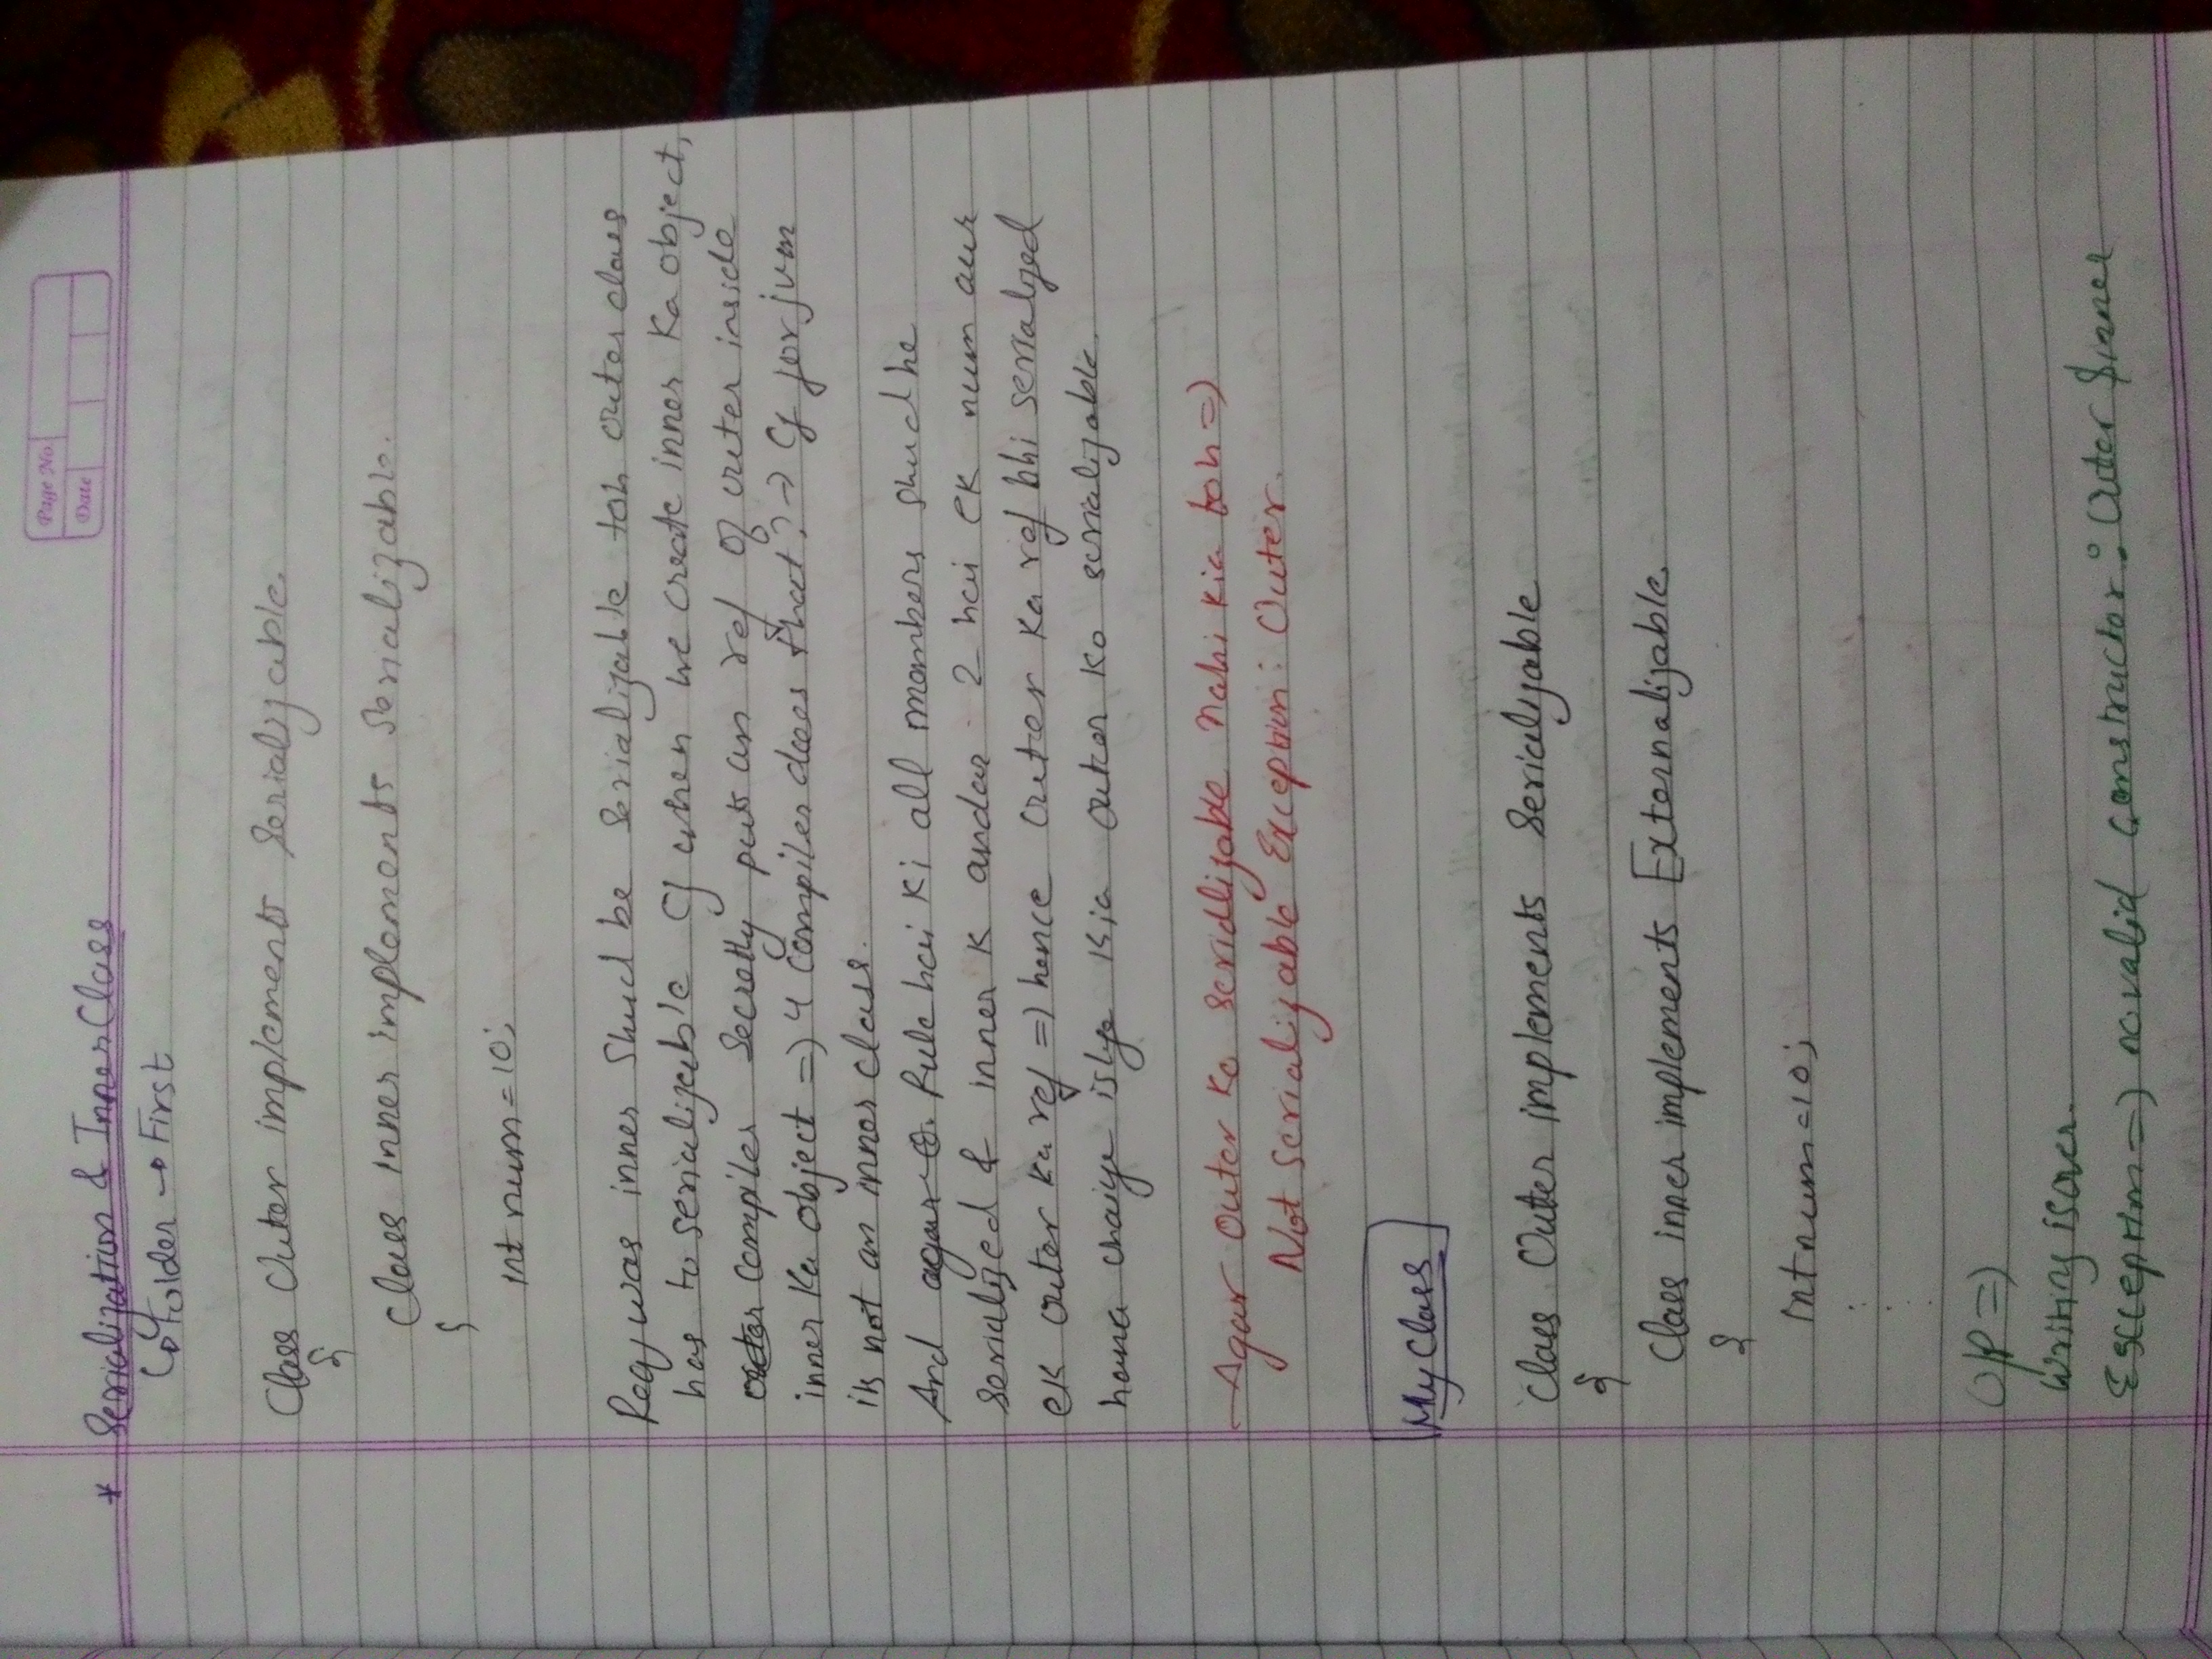 Page No.
Date
* Serialization & Inner Class
↳ Folder → First
Class Outer implements Serializable.
{
class inner implements Serializable.
{
int num = 10;
Req, was inner Shud be Serializable toh outer class
has to serializable Cz when we create inner Ka object,
outer compiler Secretly puts an ref of outer inside
inner Ka object => Y compiler does that? → Cz for jvm
its not an inner class.
And agar O. Rule hai Ki all members shud be
serialized & inner K andar 2 hai ek num aur
ek outer ka ref => hence outer Ka ref bhi serialized
hona chaiye islye Kia outer Ko serializable.
- Agar Outer Ko Serializable Nahi Kia toh =>
Not Serializable Exception : Outer.
My Class
class Outer implements Serializable
{
Class inner implements Externalizable.
{
int num = 10;
:
:
O/P =>
Writing is over.
Exception => no valid constructor : Outer $inner